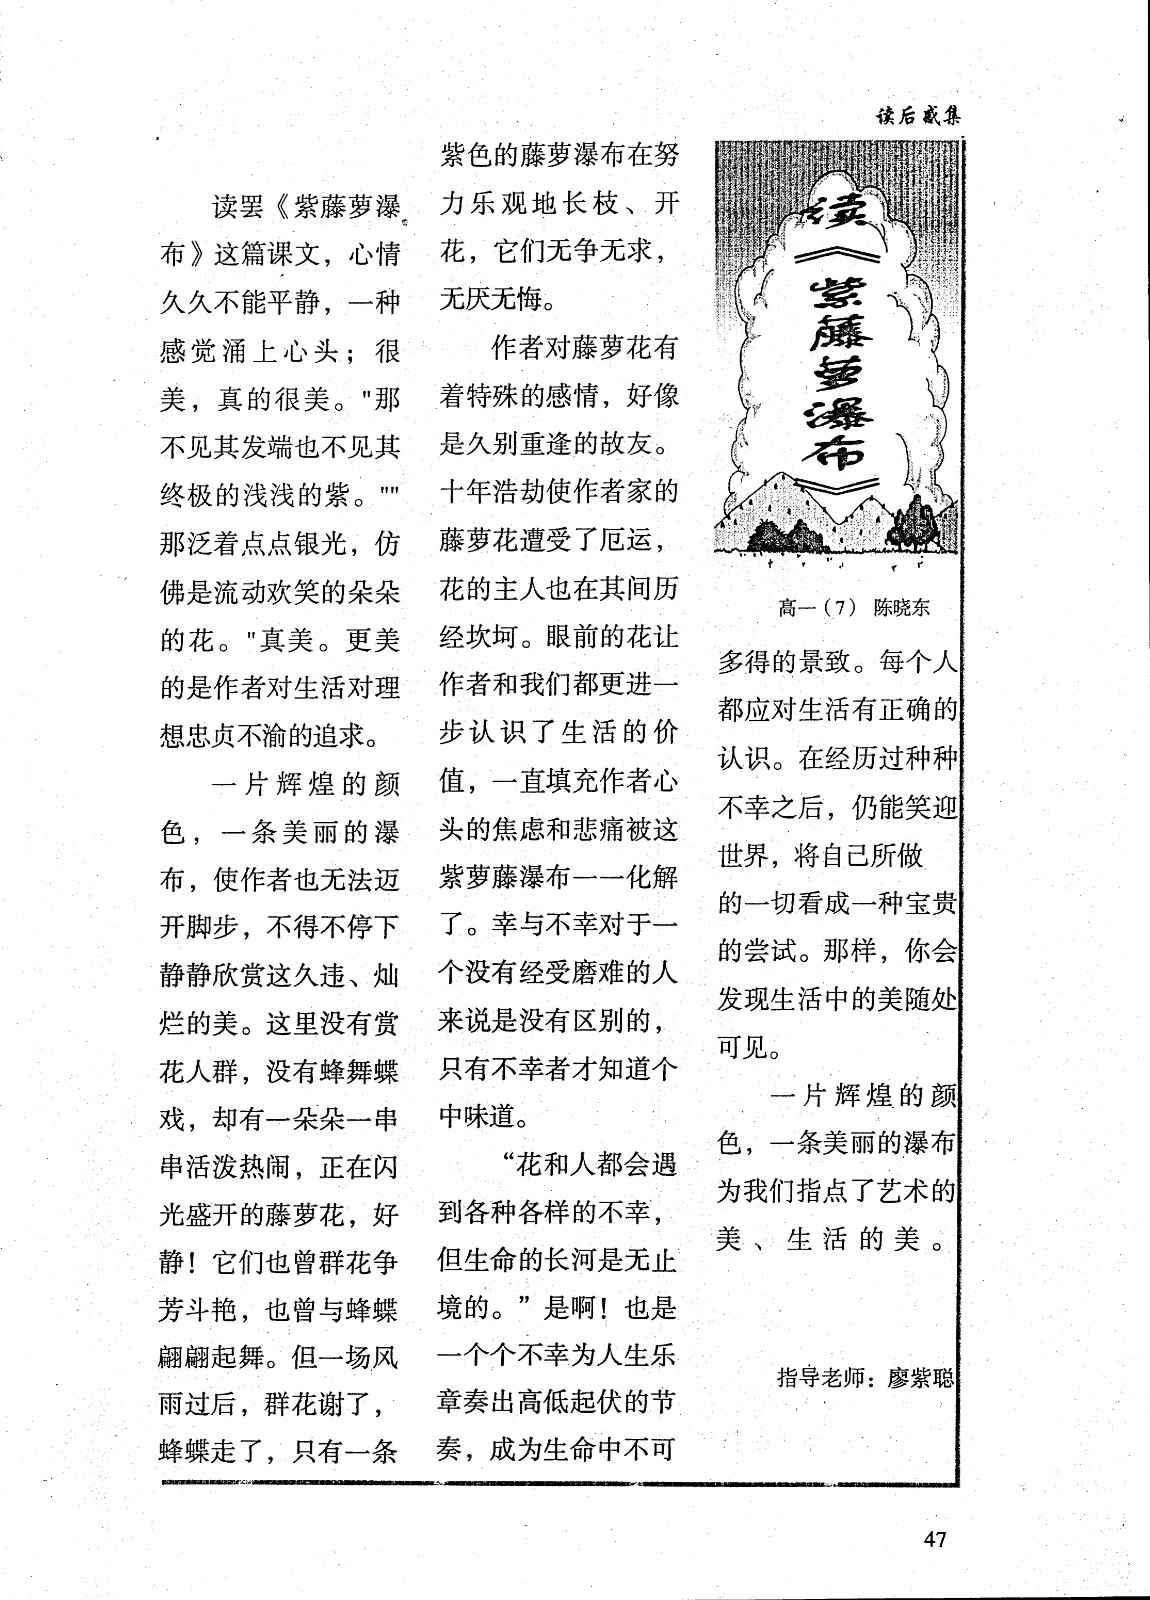 读后感集
读
《
紫
藤
萝
瀑
布
》
高一（7） 陈晓东
读罢《紫藤萝瀑
布》这篇课文，心情
久久不能平静，一种
感觉涌上心头；很
美，真的很美。"那
不见其发端也不见其
终极的浅浅的紫。""
那泛着点点银光，仿
佛是流动欢笑的朵朵
的花。"真美。更美
的是作者对生活对理
想忠贞不渝的追求。
一片辉煌的颜
色，一条美丽的瀑
布，使作者也无法迈
开脚步，不得不停下
静静欣赏这久违、灿
烂的美。这里没有赏
花人群，没有蜂舞蝶
戏，却有一朵朵一串
串活泼热闹，正在闪
光盛开的藤萝花，好
静！它们也曾群花争
芳斗艳，也曾与蜂蝶
翩翩起舞。但一场风
雨过后，群花谢了，
蜂蝶走了，只有一条
紫色的藤萝瀑布在努
力乐观地长枝、开
花，它们无争无求，
无厌无悔。
作者对藤萝花有
着特殊的感情，好像
是久别重逢的故友。
十年浩劫使作者家的
藤萝花遭受了厄运，
花的主人也在其间历
经坎坷。眼前的花让
作者和我们都更进一
步认识了生活的价
值，一直填充作者心
头的焦虑和悲痛被这
紫萝藤瀑布一一化解
了。幸与不幸对于一
个没有经受磨难的人
来说是没有区别的，
只有不幸者才知道个
中味道。
“花和人都会遇
到各种各样的不幸，
但生命的长河是无止
境的。”是啊！也是
一个个不幸为人生乐
章奏出高低起伏的节
奏，成为生命中不可
多得的景致。每个人
都应对生活有正确的
认识。在经历过种种
不幸之后，仍能笑迎
世界，将自己所做
的一切看成一种宝贵
的尝试。那样，你会
发现生活中的美随处
可见。
一片辉煌的颜
色，一条美丽的瀑布
为我们指点了艺术的
美、生活的美。
指导老师：廖紫聪
47